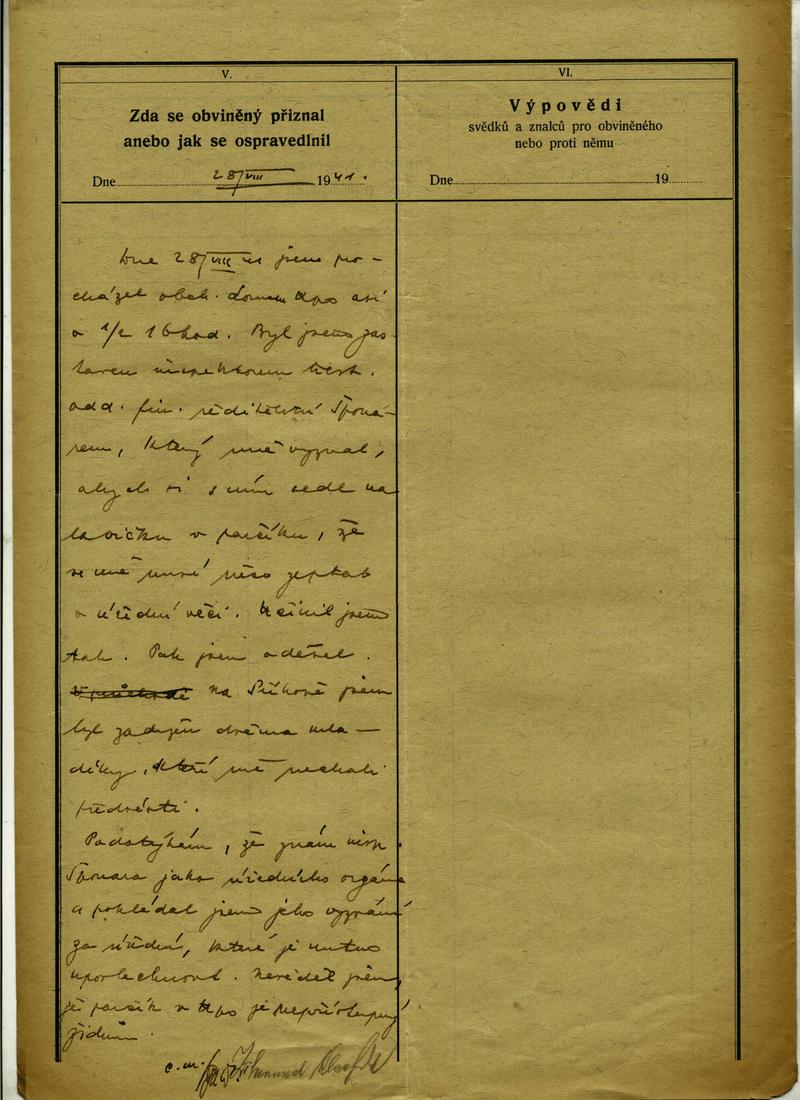 V.
Zda se obviněný přiznal
anebo jak se ospravedlnil
Dne 28/VIII 1941.
VI.
Výpovědi
svědků a znalců pro obviněného
nebo proti němu
Dne 19
Dne 28/VIII jsem pro-
cházel obch. domem asi
o 1/2 16 hod. Byl jsem zas-
taven inspektorem
odd. fin. ředitelství Šponá-
rem, který mně vyzval,
abych si s ním sedl na
lavičku v parčíku, že
se mně musí něco zeptat
o úřední věci. Učinil jsem
tak. Pak jsem odešel.
Na Příkopě jsem
byl zadržen dvěma mla-
díky, kteří mě nechali
předvésti.
Podotýkám, že znám insp.
Šponara jako úředního orgána
a pokládal jsem jeho vyzvání
za úřední, které je nutno
uposlechnout. Nevěděl jsem,
že parčík v je nepřístupný
židům.